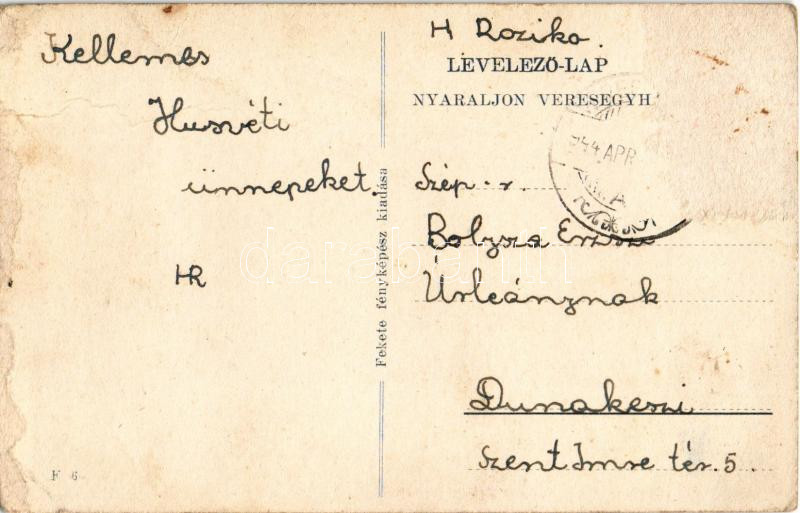 Kellemes
Husvéti
ünnepeket.
HR
F 6
Fekete fényképész kiadása
H Rozika.
LEVELEZŐ-LAP
NYARALJON VERESEGYH
944. APR
Szép. r.
Bolyza Erzsi
Úrleánynak
Dunakeszi
Szent Imre tér. 5.
darabanth